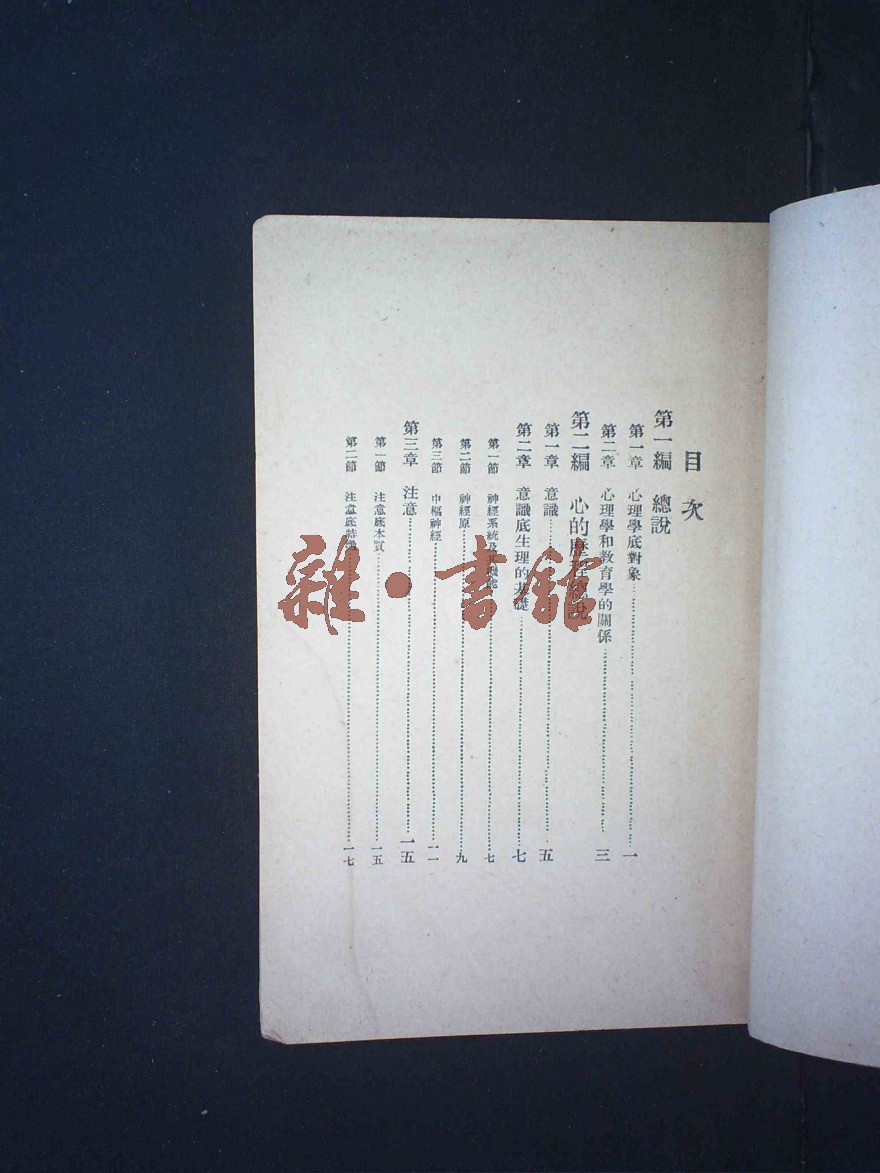 目次
第一編 總說
第一章 心理學底對象 一
第二章 心理學和教育學的關係 三
第二編 心的歷程總說
第一章 意識 五
第二章 意識底生理的基礎 七
第一節 神經系統及其機能 七
第二節 神經原 九
第三節 中樞神經 一一
第三章 注意 一五
第一節 注意底本質 一五
第二節 注意底特 一七
雜·書館